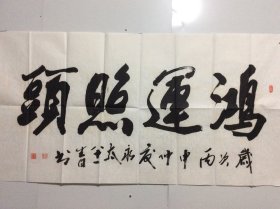 鴻運照頭
歲次丙申仲夏永